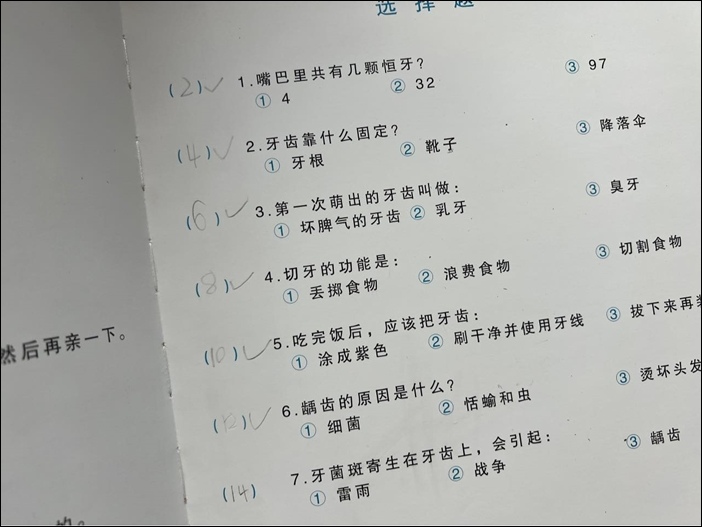 选择题
(2)✓ 1.嘴巴里共有几颗恒牙?
① 4 ② 32 ③ 97
(4)✓ 2.牙齿靠什么固定?
① 牙根 ② 靴子 ③ 降落伞
(6)✓ 3.第一次萌出的牙齿叫做:
① 坏脾气的牙齿 ② 乳牙 ③ 臭牙
(8)✓ 4.切牙的功能是:
① 丢掷食物 ② 浪费食物 ③ 切割食物
(10)✓ 5.吃完饭后,应该把牙齿:
① 涂成紫色 ② 刷干净并使用牙线 ③ 拔下来再
(12)✓ 6.龋齿的原因是什么?
① 细菌 ② 恬蝓和虫 ③ 烫坏头发
(14) 7.牙菌斑寄生在牙齿上,会引起:
① 雷雨 ② 战争 ③ 龋齿
然后再亲一下。